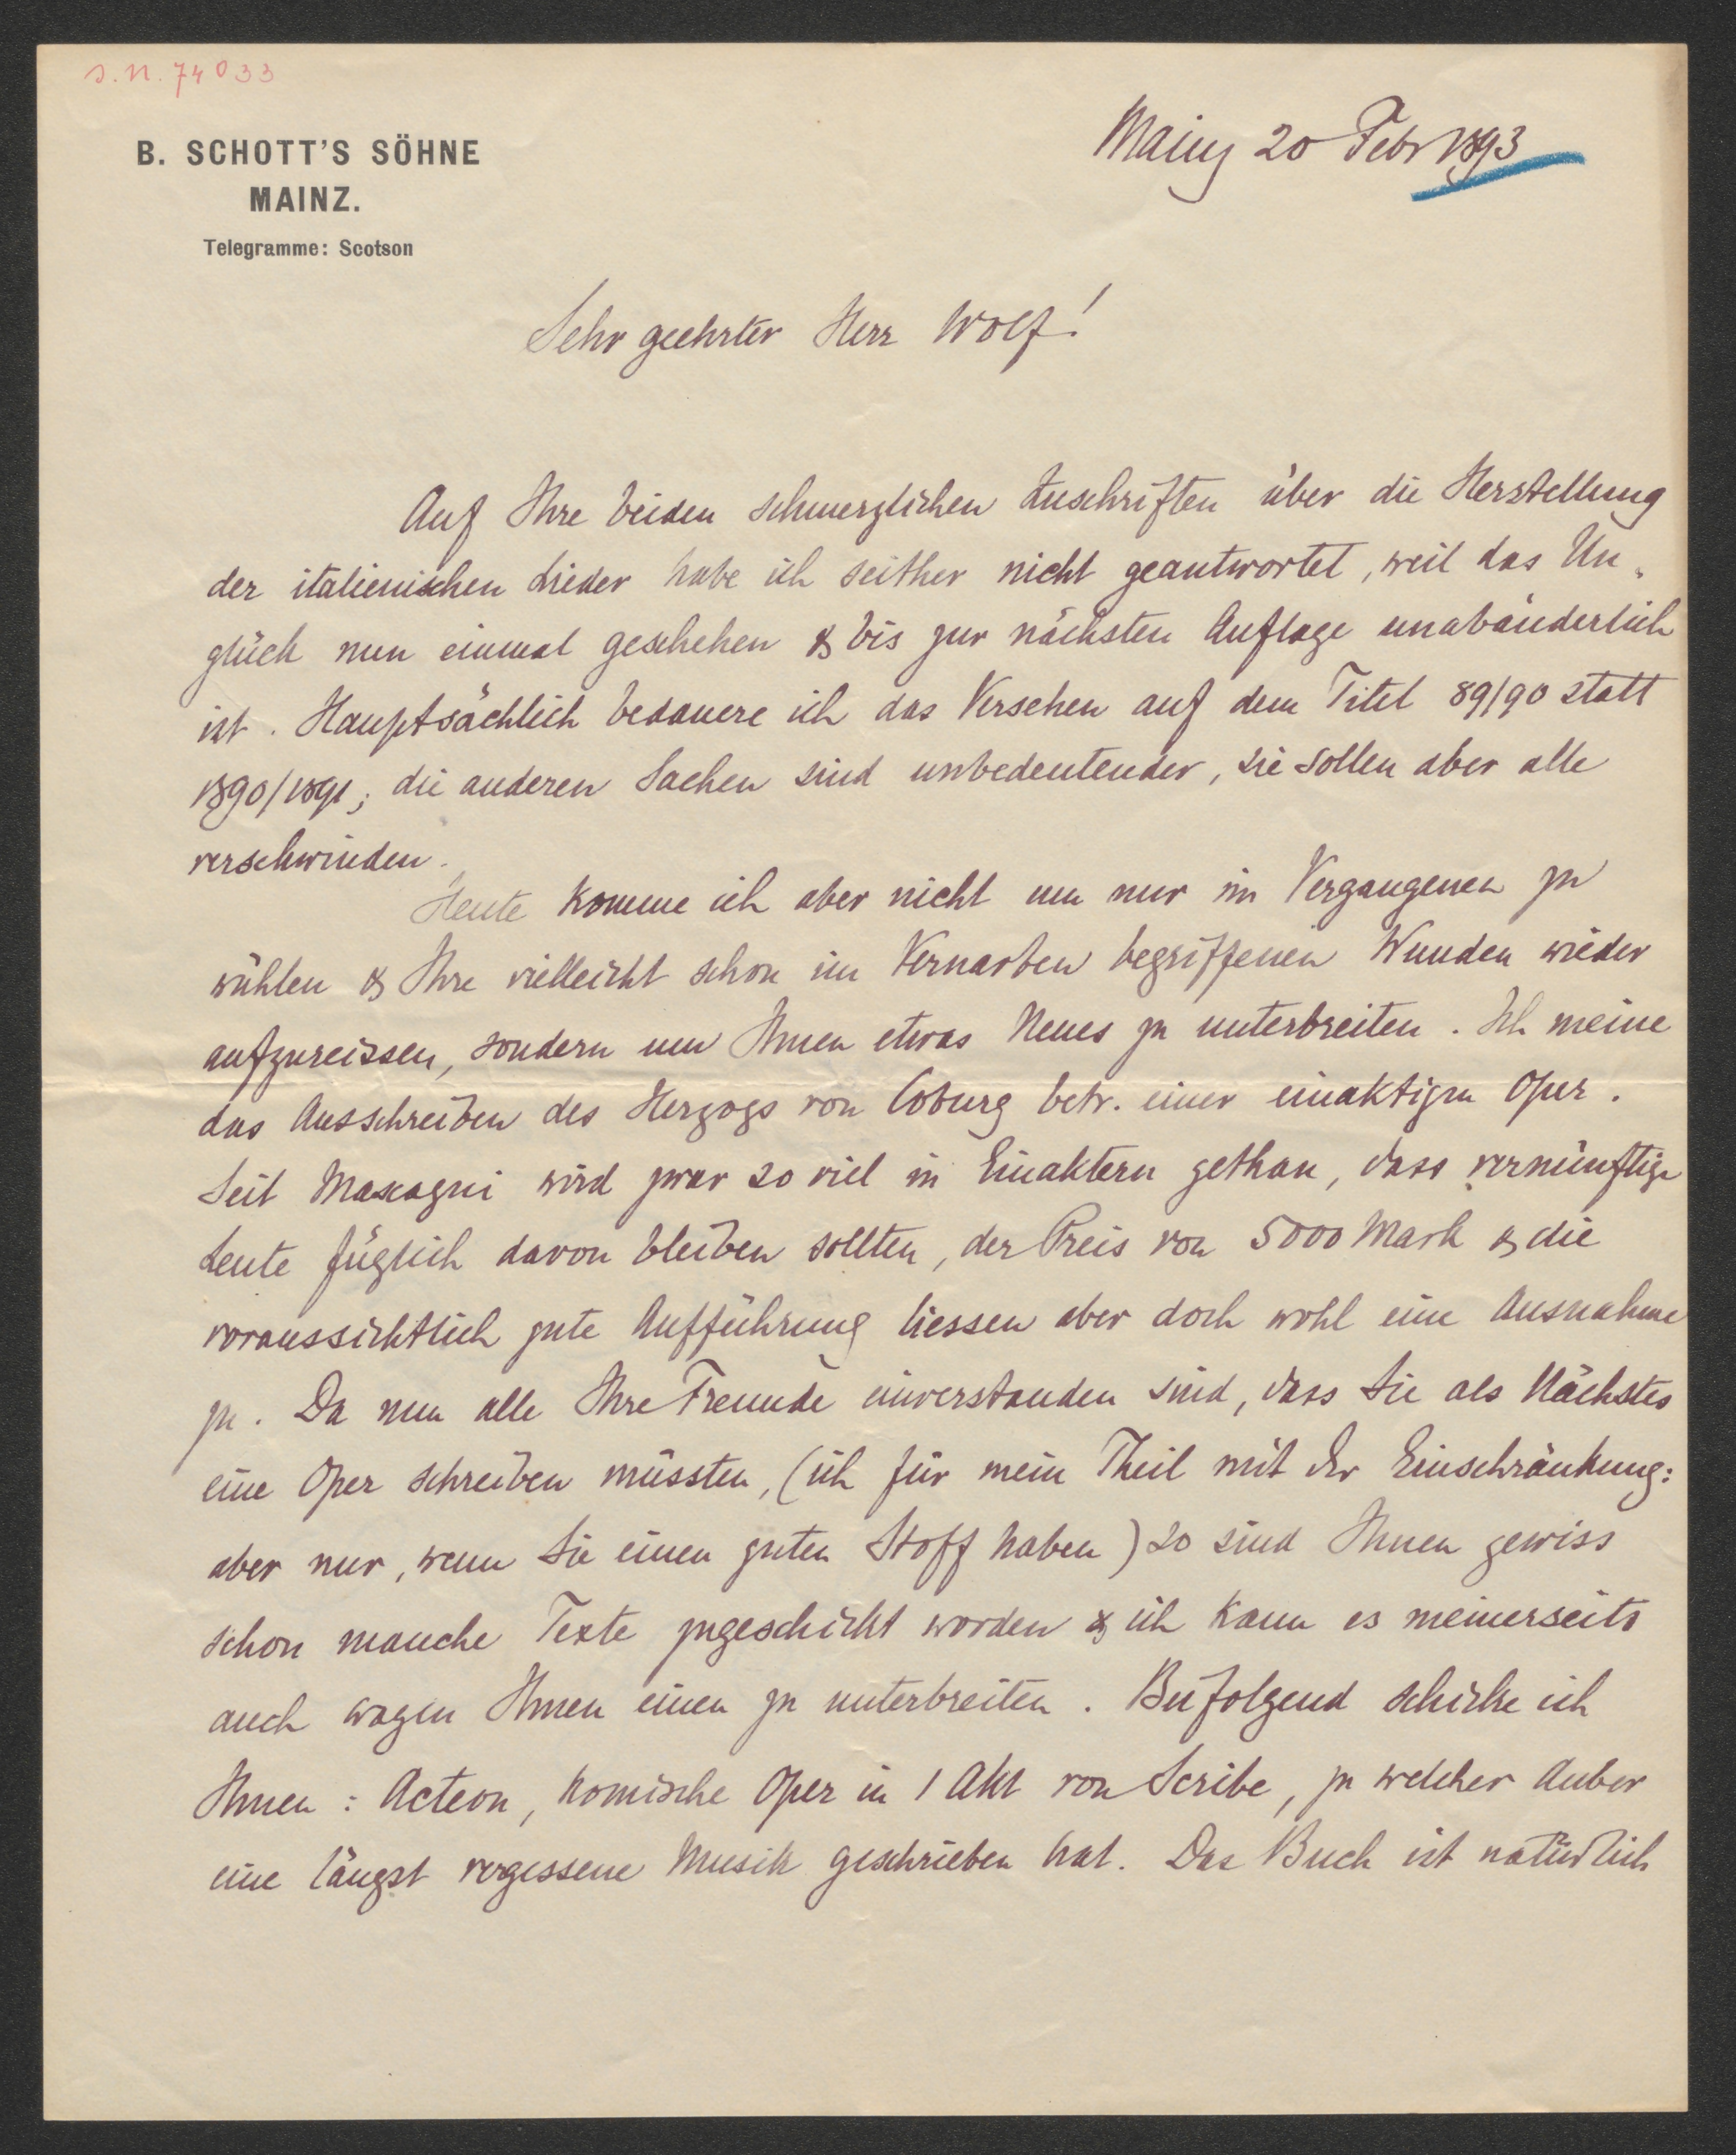 s.n. 74033
B. SCHOTT'S SÖHNE
MAINZ.
Telegramme: Scotson
Mainz 20 Febr 1893
Sehr geehrter Herr Wolf!
Auf Ihre beiden schmerzlichen Zuschriften über die Herstellung
der italienischen Lieder habe ich seither nicht geantwortet, weil das Un-
glück nun einmal geschehen & bis zur nächsten Auflage unabänderlich
ist. Hauptsächlich bedauere ich das Versehen auf dem Titel 89/90 statt
1890/1891; die anderen Sachen sind unbedeutender, sie sollen aber alle
verschwinden.
Heute komme ich aber nicht um nur im Vergangenen zu
wühlen & Ihre vielleicht schon im Vernarben begriffenen Wunden wieder
aufzureissen, sondern um Ihnen etwas Neues zu unterbreiten. Ich meine
das Ausschreiben des Herzogs von Coburg betr. einer einaktigen Oper.
Seit Mascagni wird zwar so viel in Einaktern gethan, dass vernünftige
Leute füglich davon bleiben sollten, der Preis von 5000 Mark & die
voraussichtlich gute Aufführung liessen aber doch wohl eine Ausnahme
zu. Da nun alle Ihre Freunde einverstanden sind, dass Sie als Nächstes
eine Oper schreiben müssten, (ich für mein Theil mit der Einschränkung:
aber nur, wenn Sie einen guten Stoff haben) so sind Ihnen gewiss
schon manche Texte zugeschickt worden & ich kann es meinerseits
auch wagen Ihnen einen zu unterbreiten. Beifolgend schicke ich
Ihnen: Acteon, komische Oper in 1 Akt von Scribe, zu welcher Auber
eine längst vergessene Musik geschrieben hat. Das Buch ist natürlich